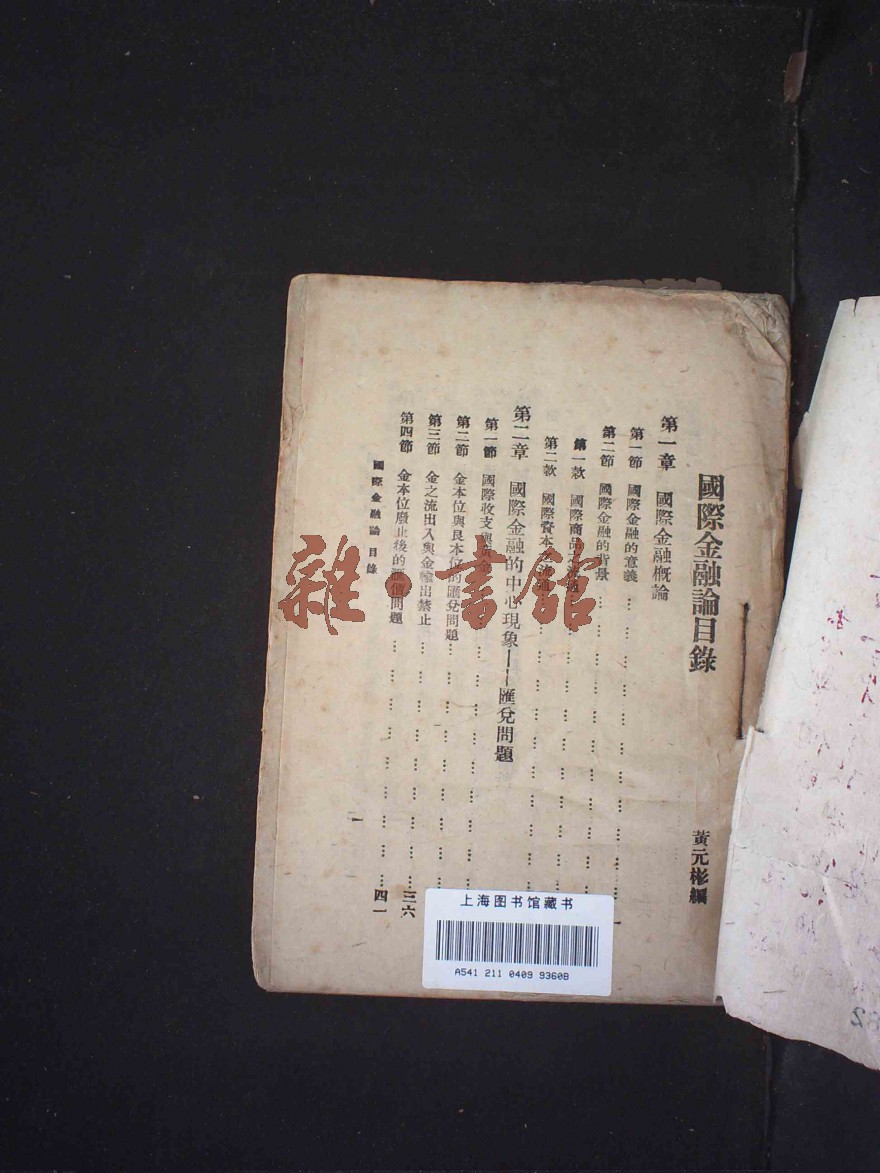 國際金融論目錄
黃元彬編
第一章 國際金融概論
第一節 國際金融的意義 一
第二節 國際金融的背景
第一款 國際商品之流通
第二款 國際資本之流通
第二章 國際金融的中心現象——匯兌問題
第一節 國際收支與
第二節 金本位與良本位的匯兌問題
第三節 金之流出入與金輸出禁止 三六
第四節 金本位廢止後的匯價問題 四一
國際金融論 目錄
一
上海图书馆藏书
A541 211 0409 9360B
雜·書館
62